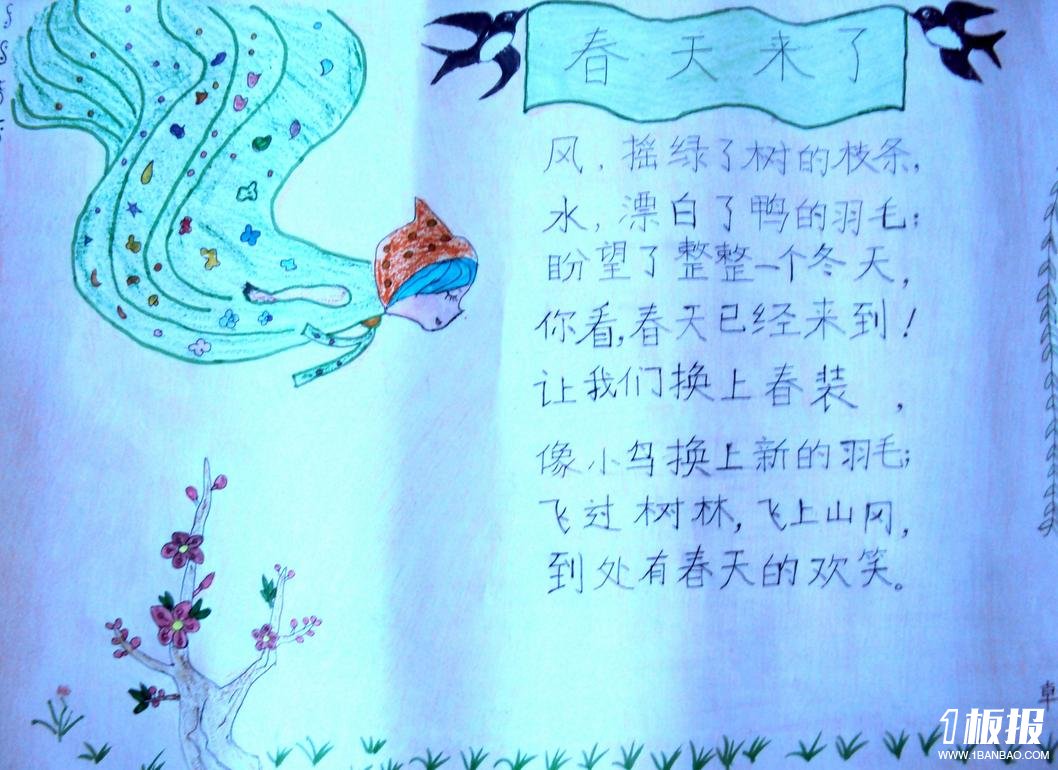 春天来了
风,摇绿了树的枝条,
水,漂白了鸭的羽毛;
盼望了整整一个冬天,
你看,春天已经来到!
让我们换上春装,
像小鸟换上新的羽毛;
飞过树林,飞上山冈,
到处有春天的欢笑。
1板报
WWW.1BANBAO.COM